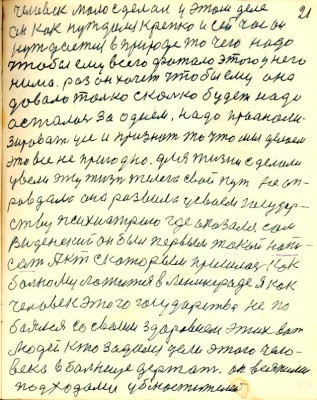 21
человек мало сделал у этом деле
он как нуждался крепко и сей час он
нуждается в природе то чего надо
чтобы ему всего хватало этого у него
нима. раз он хочет чтобы ему она
довало толко сколко будет надо
осталая за одном. надо проанали-
зировать усе и признат то что мы делаем
это все не пригодно. для жизни сделали
увели эту жизн телега свой пут не оп-
равдала она развила усваем государ-
ству психиатрию где оказался сам
Виденский он был первым такой напи-
сан Акт с каторым пришлая как
болному ложится в Ленинграде я как
человек этого государства не по
баялся со своим здаровием этих вот
людей кто задался цели этого чело-
века в балнице держат. он всякими
подходами убюстителей